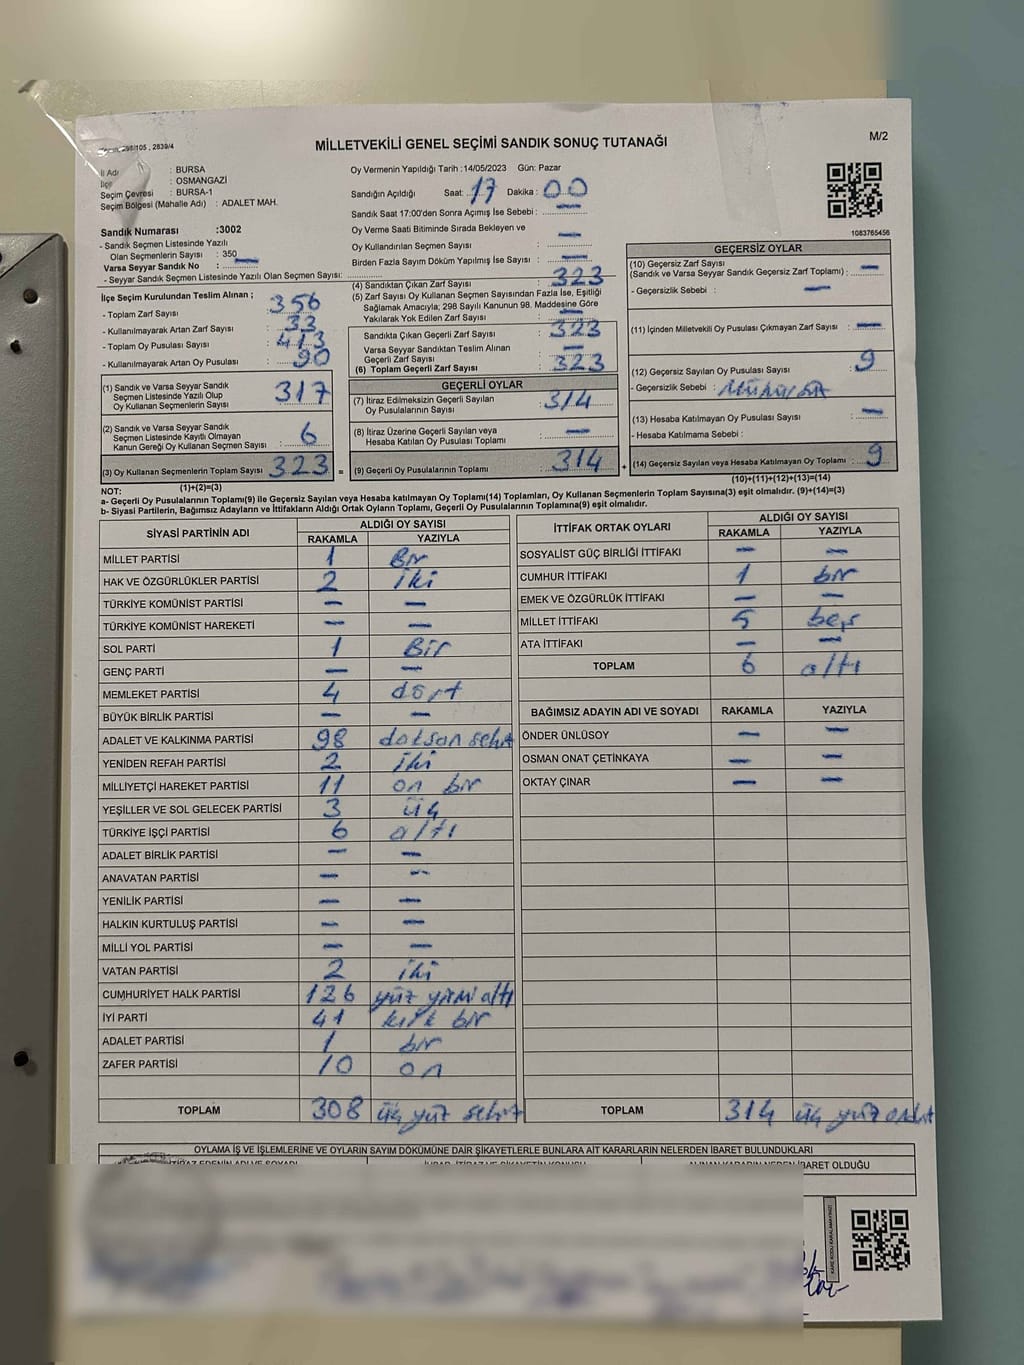 298/105 , 2839/4
MİLLETVEKİLİ GENEL SEÇİMİ SANDIK SONUÇ TUTANAĞI
M/2
İl Adı : BURSA
İlçe : OSMANGAZİ
Seçim Çevresi : BURSA-1
Seçim Bölgesi (Mahalle Adı) : ADALET MAH.
Oy Vermenin Yapıldığı Tarih :14/05/2023 Gün: Pazar
Sandığın Açıldığı Saat: 17 Dakika : 00
Sandık Saat 17:00'den Sonra Açımış İse Sebebi : —
Oy Verme Saati Bitiminde Sırada Bekleyen ve
Oy Kullandırılan Seçmen Sayısı : —
Birden Fazla Sayım Döküm Yapılmış İse Sayısı : —
1083765456
Sandık Numarası :3002
- Sandık Seçmen Listesinde Yazılı
Olan Seçmenlerin Sayısı : 350
Varsa Seyyar Sandık No : —
- Seyyar Sandık Seçmen Listesinde Yazılı Olan Seçmen Sayısı:
İlçe Seçim Kurulundan Teslim Alınan ;
- Toplam Zarf Sayısı : 356
- Kullanılmayarak Artan Zarf Sayısı : 33
- Toplam Oy Pusulası Sayısı : 413
- Kullanılmayarak Artan Oy Pusulası : 90
(1) Sandık ve Varsa Seyyar Sandık
Seçmen Listesinde Yazılı Olup
Oy Kullanan Seçmenlerin Sayısı : 317
(2) Sandık ve Varsa Seyyar Sandık
Seçmen Listesinde Kayıtlı Olmayan
Kanun Gereği Oy Kullanan Seçmen Sayısı : 6
(3) Oy Kullanan Seçmenlerin Toplam Sayısı : 323
(1)+(2)=(3)
(4) Sandıktan Çıkan Zarf Sayısı : 323
(5) Zarf Sayısı Oy Kullanan Seçmen Sayısından Fazla İse, Eşitliği
Sağlamak Amacıyla; 298 Sayılı Kanunun 98. Maddesine Göre
Yakılarak Yok Edilen Zarf Sayısı : —
Sandıkta Çıkan Geçerli Zarf Sayısı : 323
Varsa Seyyar Sandıktan Teslim Alınan
Geçerli Zarf Sayısı : —
(6) Toplam Geçerli Zarf Sayısı : 323
GEÇERLİ OYLAR
(7) İtiraz Edilmeksizin Geçerli Sayılan
Oy Pusulalarının Sayısı : 314
(8) İtiraz Üzerine Geçerli Sayılan veya
Hesaba Katılan Oy Pusulası Toplamı : —
= (9) Geçerli Oy Pusulalarının Toplamı : 314
GEÇERSİZ OYLAR
(10) Geçersiz Zarf Sayısı
(Sandık ve Varsa Seyyar Sandık Geçersiz Zarf Toplamı) : —
- Geçersizlik Sebebi : —
(11) İçinden Milletvekili Oy Pusulası Çıkmayan Zarf Sayısı : —
(12) Geçersiz Sayılan Oy Pusulası Sayısı : 9
- Geçersizlik Sebebi :
(13) Hesaba Katılmayan Oy Pusulası Sayısı : —
- Hesaba Katılmama Sebebi :
+ (14) Geçersiz Sayılan veya Hesaba Katılmayan Oy Toplamı : 9
(10)+(11)+(12)+(13)=(14)
NOT:
a- Geçerli Oy Pusulalarının Toplamı(9) ile Geçersiz Sayılan veya Hesaba katılmayan Oy Toplamı(14) Toplamları, Oy Kullanan Seçmenlerin Toplam Sayısına(3) eşit olmalıdır. (9)+(14)=(3)
b- Siyasi Partilerin, Bağımsız Adayların ve İttifakların Aldığı Ortak Oyların Toplamı, Geçerli Oy Pusulalarının Toplamına(9) eşit olmalıdır.
SİYASİ PARTİNİN ADI ALDIĞI OY SAYISI
RAKAMLA YAZIYLA
MİLLET PARTİSİ 1 Bir
HAK VE ÖZGÜRLÜKLER PARTİSİ 2 iki
TÜRKİYE KOMÜNİST PARTİSİ — —
TÜRKİYE KOMÜNİST HAREKETİ — —
SOL PARTİ 1 Bir
GENÇ PARTİ — —
MEMLEKET PARTİSİ 4 dört
BÜYÜK BİRLİK PARTİSİ — —
ADALET VE KALKINMA PARTİSİ 98 doksan sekiz
YENİDEN REFAH PARTİSİ 2 iki
MİLLİYETÇİ HAREKET PARTİSİ 11 on bir
YEŞİLLER VE SOL GELECEK PARTİSİ 3 üç
TÜRKİYE İŞÇİ PARTİSİ 6 altı
ADALET BİRLİK PARTİSİ — —
ANAVATAN PARTİSİ — —
YENİLİK PARTİSİ — —
HALKIN KURTULUŞ PARTİSİ — —
MİLLİ YOL PARTİSİ — —
VATAN PARTİSİ 2 iki
CUMHURİYET HALK PARTİSİ 126 yüz yirmi altı
İYİ PARTİ 41 kırk bir
ADALET PARTİSİ 1 bir
ZAFER PARTİSİ 10 on
TOPLAM 308 üç yüz sekiz
İTTİFAK ORTAK OYLARI ALDIĞI OY SAYISI
RAKAMLA YAZIYLA
SOSYALİST GÜÇ BİRLİĞİ İTTİFAKI — —
CUMHUR İTTİFAKI 1 bir
EMEK VE ÖZGÜRLÜK İTTİFAKI — —
MİLLET İTTİFAKI 5 beş
ATA İTTİFAKI — —
TOPLAM 6 altı
BAĞIMSIZ ADAYIN ADI VE SOYADI RAKAMLA YAZIYLA
ÖNDER ÜNLÜSOY — —
OSMAN ONAT ÇETİNKAYA — —
OKTAY ÇINAR — —
TOPLAM 314 üç yüz ondört
OYLAMA İŞ VE İŞLEMLERİNE VE OYLARIN SAYIM DÖKÜMÜNE DAİR ŞİKAYETLERLE BUNLARA AİT KARARLARIN NELERDEN İBARET BULUNDUKLARI
ALINAN KARARIN NEDEN İBARET OLDUĞU
KARE KODU KARALAMAYINIZ!